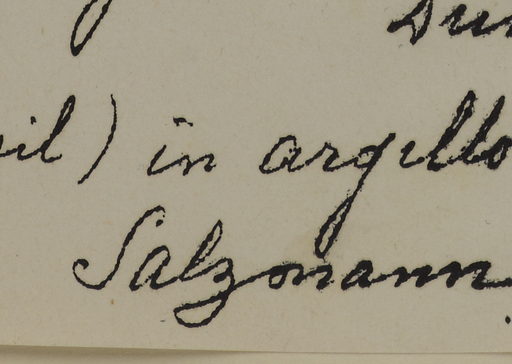 il) in argillo
Salzmann.